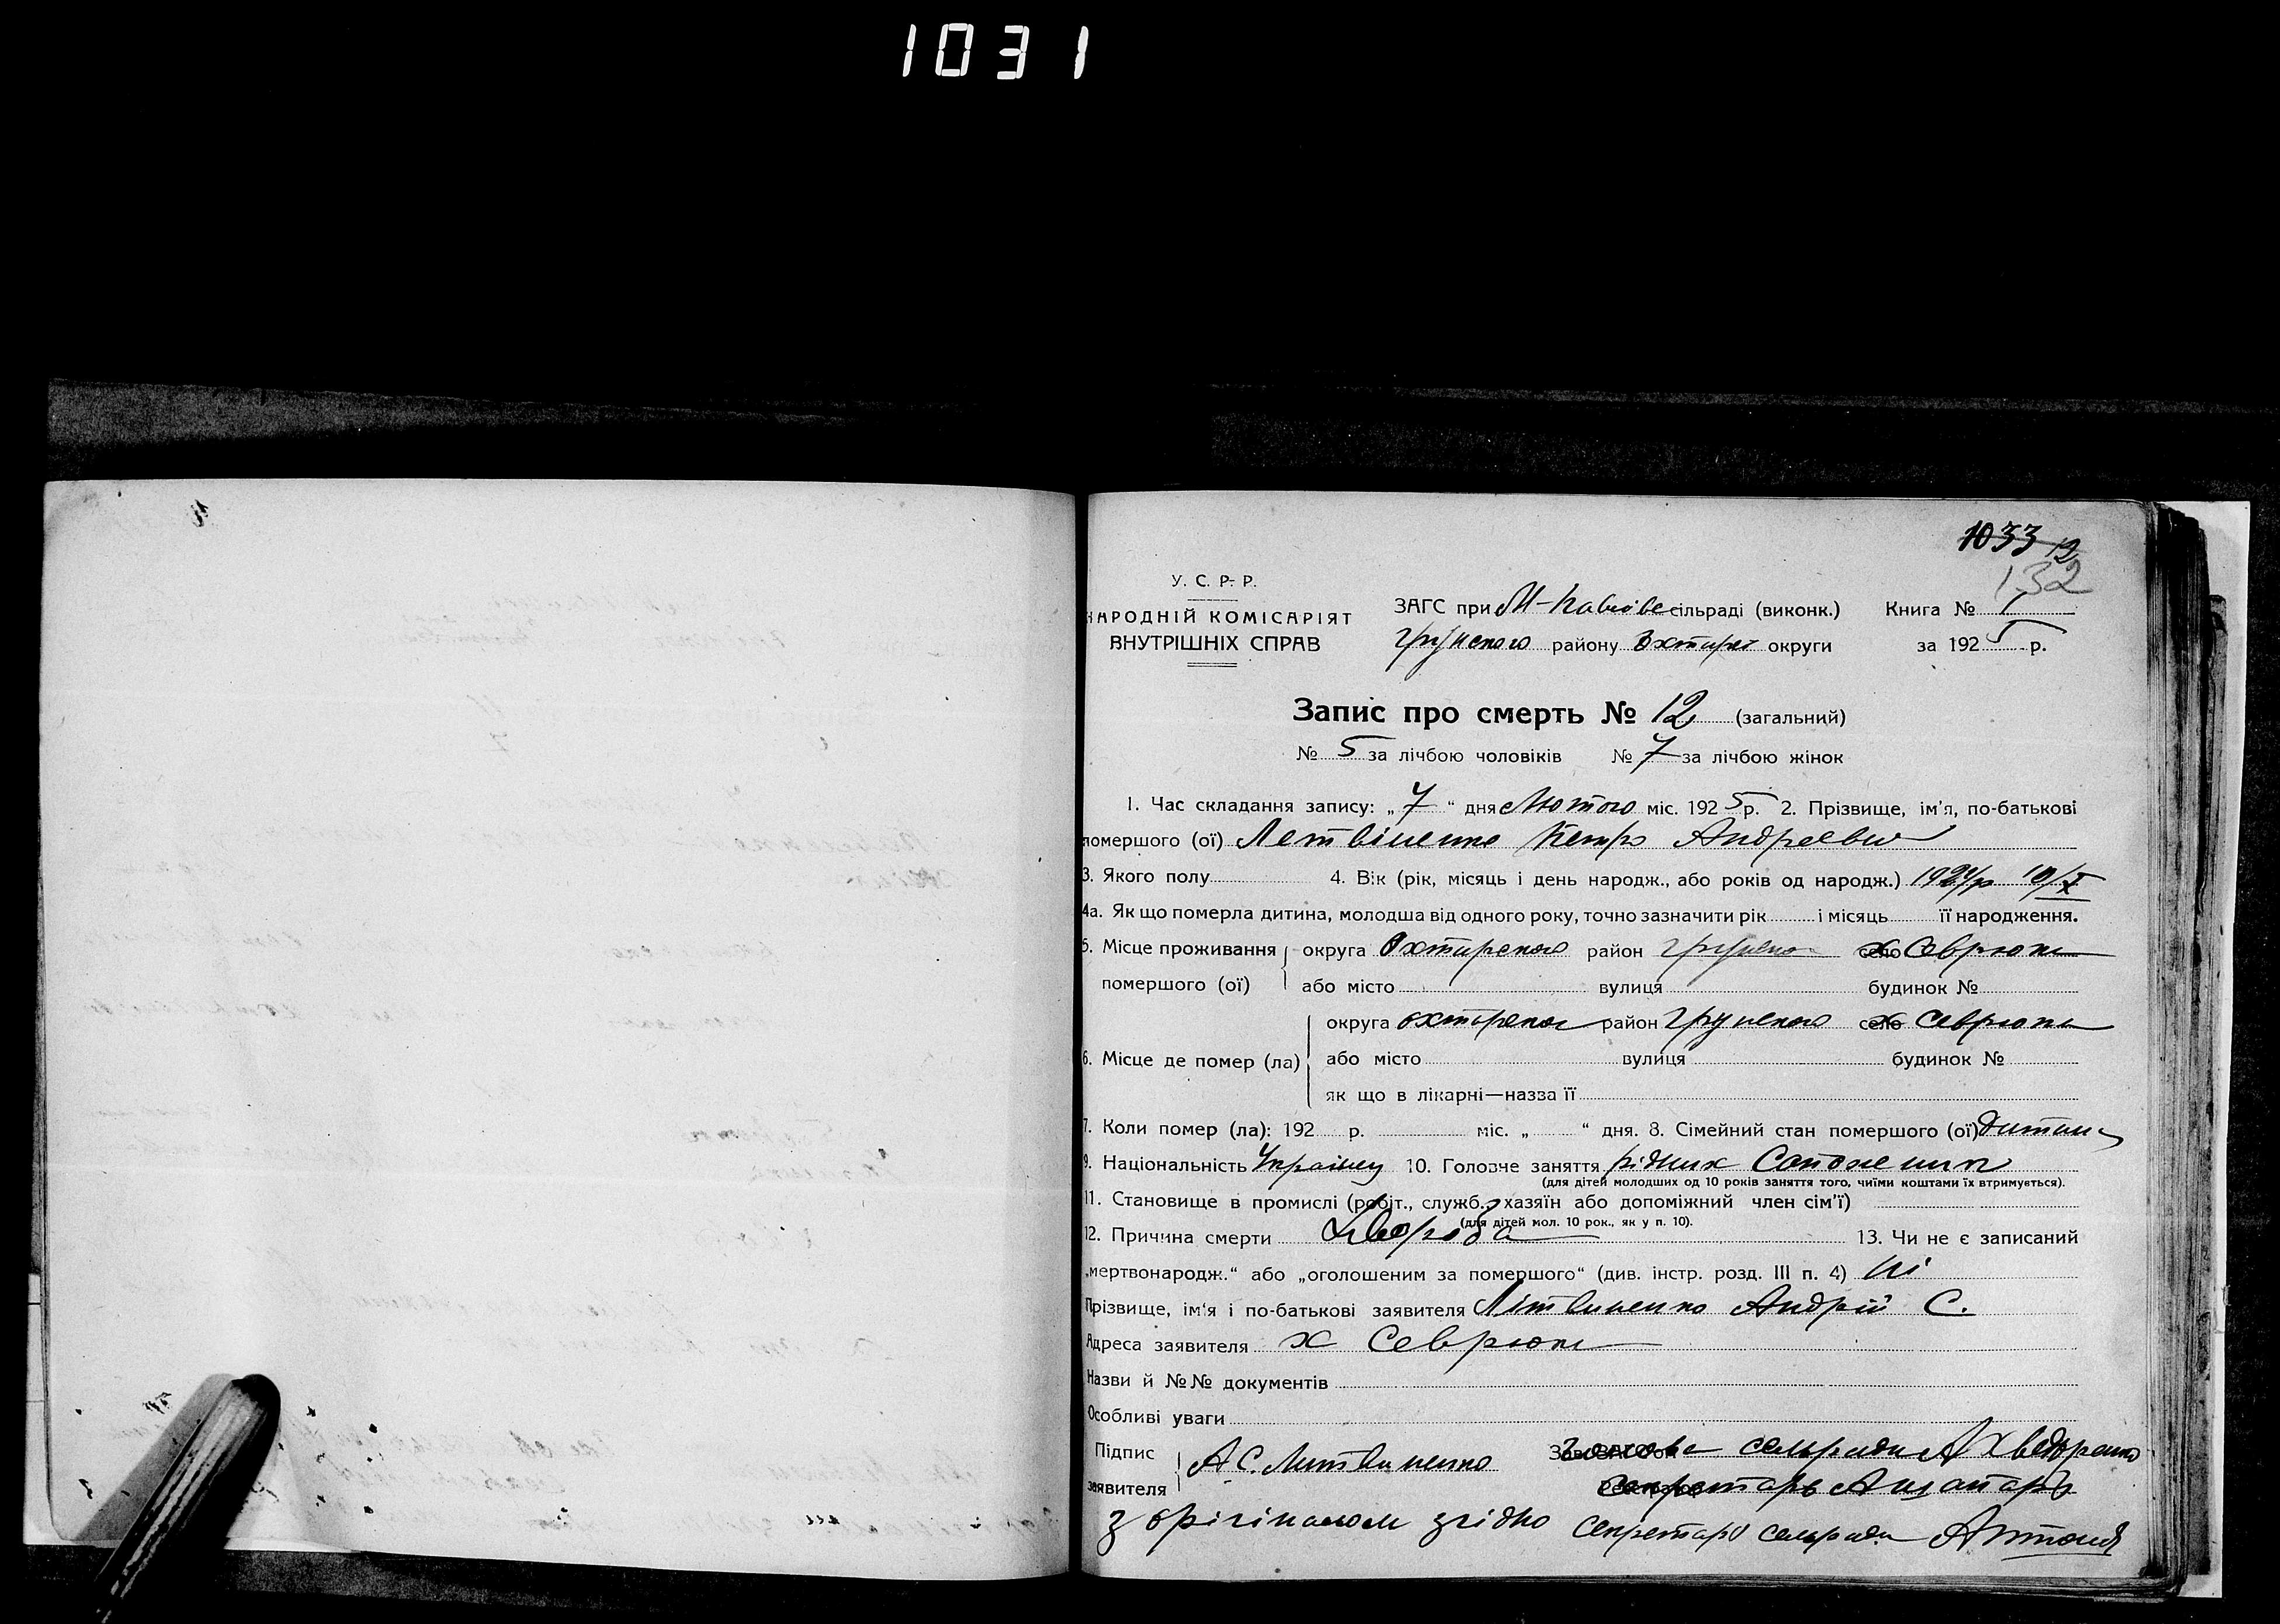 1031
1033 12
132
У. С. Р. Р.
НАРОДНІЙ КОМІСАРІЯТ
ВНУТРІШНІХ СПРАВ
ЗАГС при сільраді (виконк.) Книга № 1
Грунского району Охтирс округи за 1925 р.
Запис про смерть № 12 (загальний)
№ 5 за лічбою чоловіків № 7 за лічбою жінок
1. Час складання запису: „ 7 “ дня Лютого міс. 1925 р. 2. Прізвище, ім’я, по-батькові
помершого (ої) Летвіненко Петро Андреевич
3. Якого полу 4. Вік (рік, місяць і день народж., або років од народж.) 1924/р 10/X
4а. Як що померла дитина, молодша від одного року, точно зазначити рік і місяць її народження.
5. Місце проживання округа Охтирского район Грунско село х Севрюки
помершого (ої) або місто вулиця будинок №
округа Охтирског район Грунского село х Севрюки
6. Місце де помер (ла) або місто вулиця будинок №
як що в лікарні—назва її
7. Коли помер (ла): 192 р. міс. „ “ дня. 8. Сімейний стан помершого (ої) дитина
9. Національність Украінец 10. Головче заняття
(для дітей молодших од 10 років заняття того, чиїми коштами їх втримується).
11. Становище в промислі (робіт., служб., хазяїн або допоміжний член сім’ї)
(для дітей мол. 10 рок., як у п. 10).
12. Причина смерти Хвороба 13. Чи не є записаний
„мертвонародж.“ або „оголошеним за помершого“ (див. інстр. розд. III п. 4) Ні
Прізвище, ім’я і по-батькові заявителя Літвиненко Андрій С.
Адреса заявителя х Севрюки
Назви й №№ документів
Особливі уваги
Підпис А. С. Литвиненко Голова сельради А Хведоренко
заявителя секретарь
З орігіналом згідно Секретарь сельради